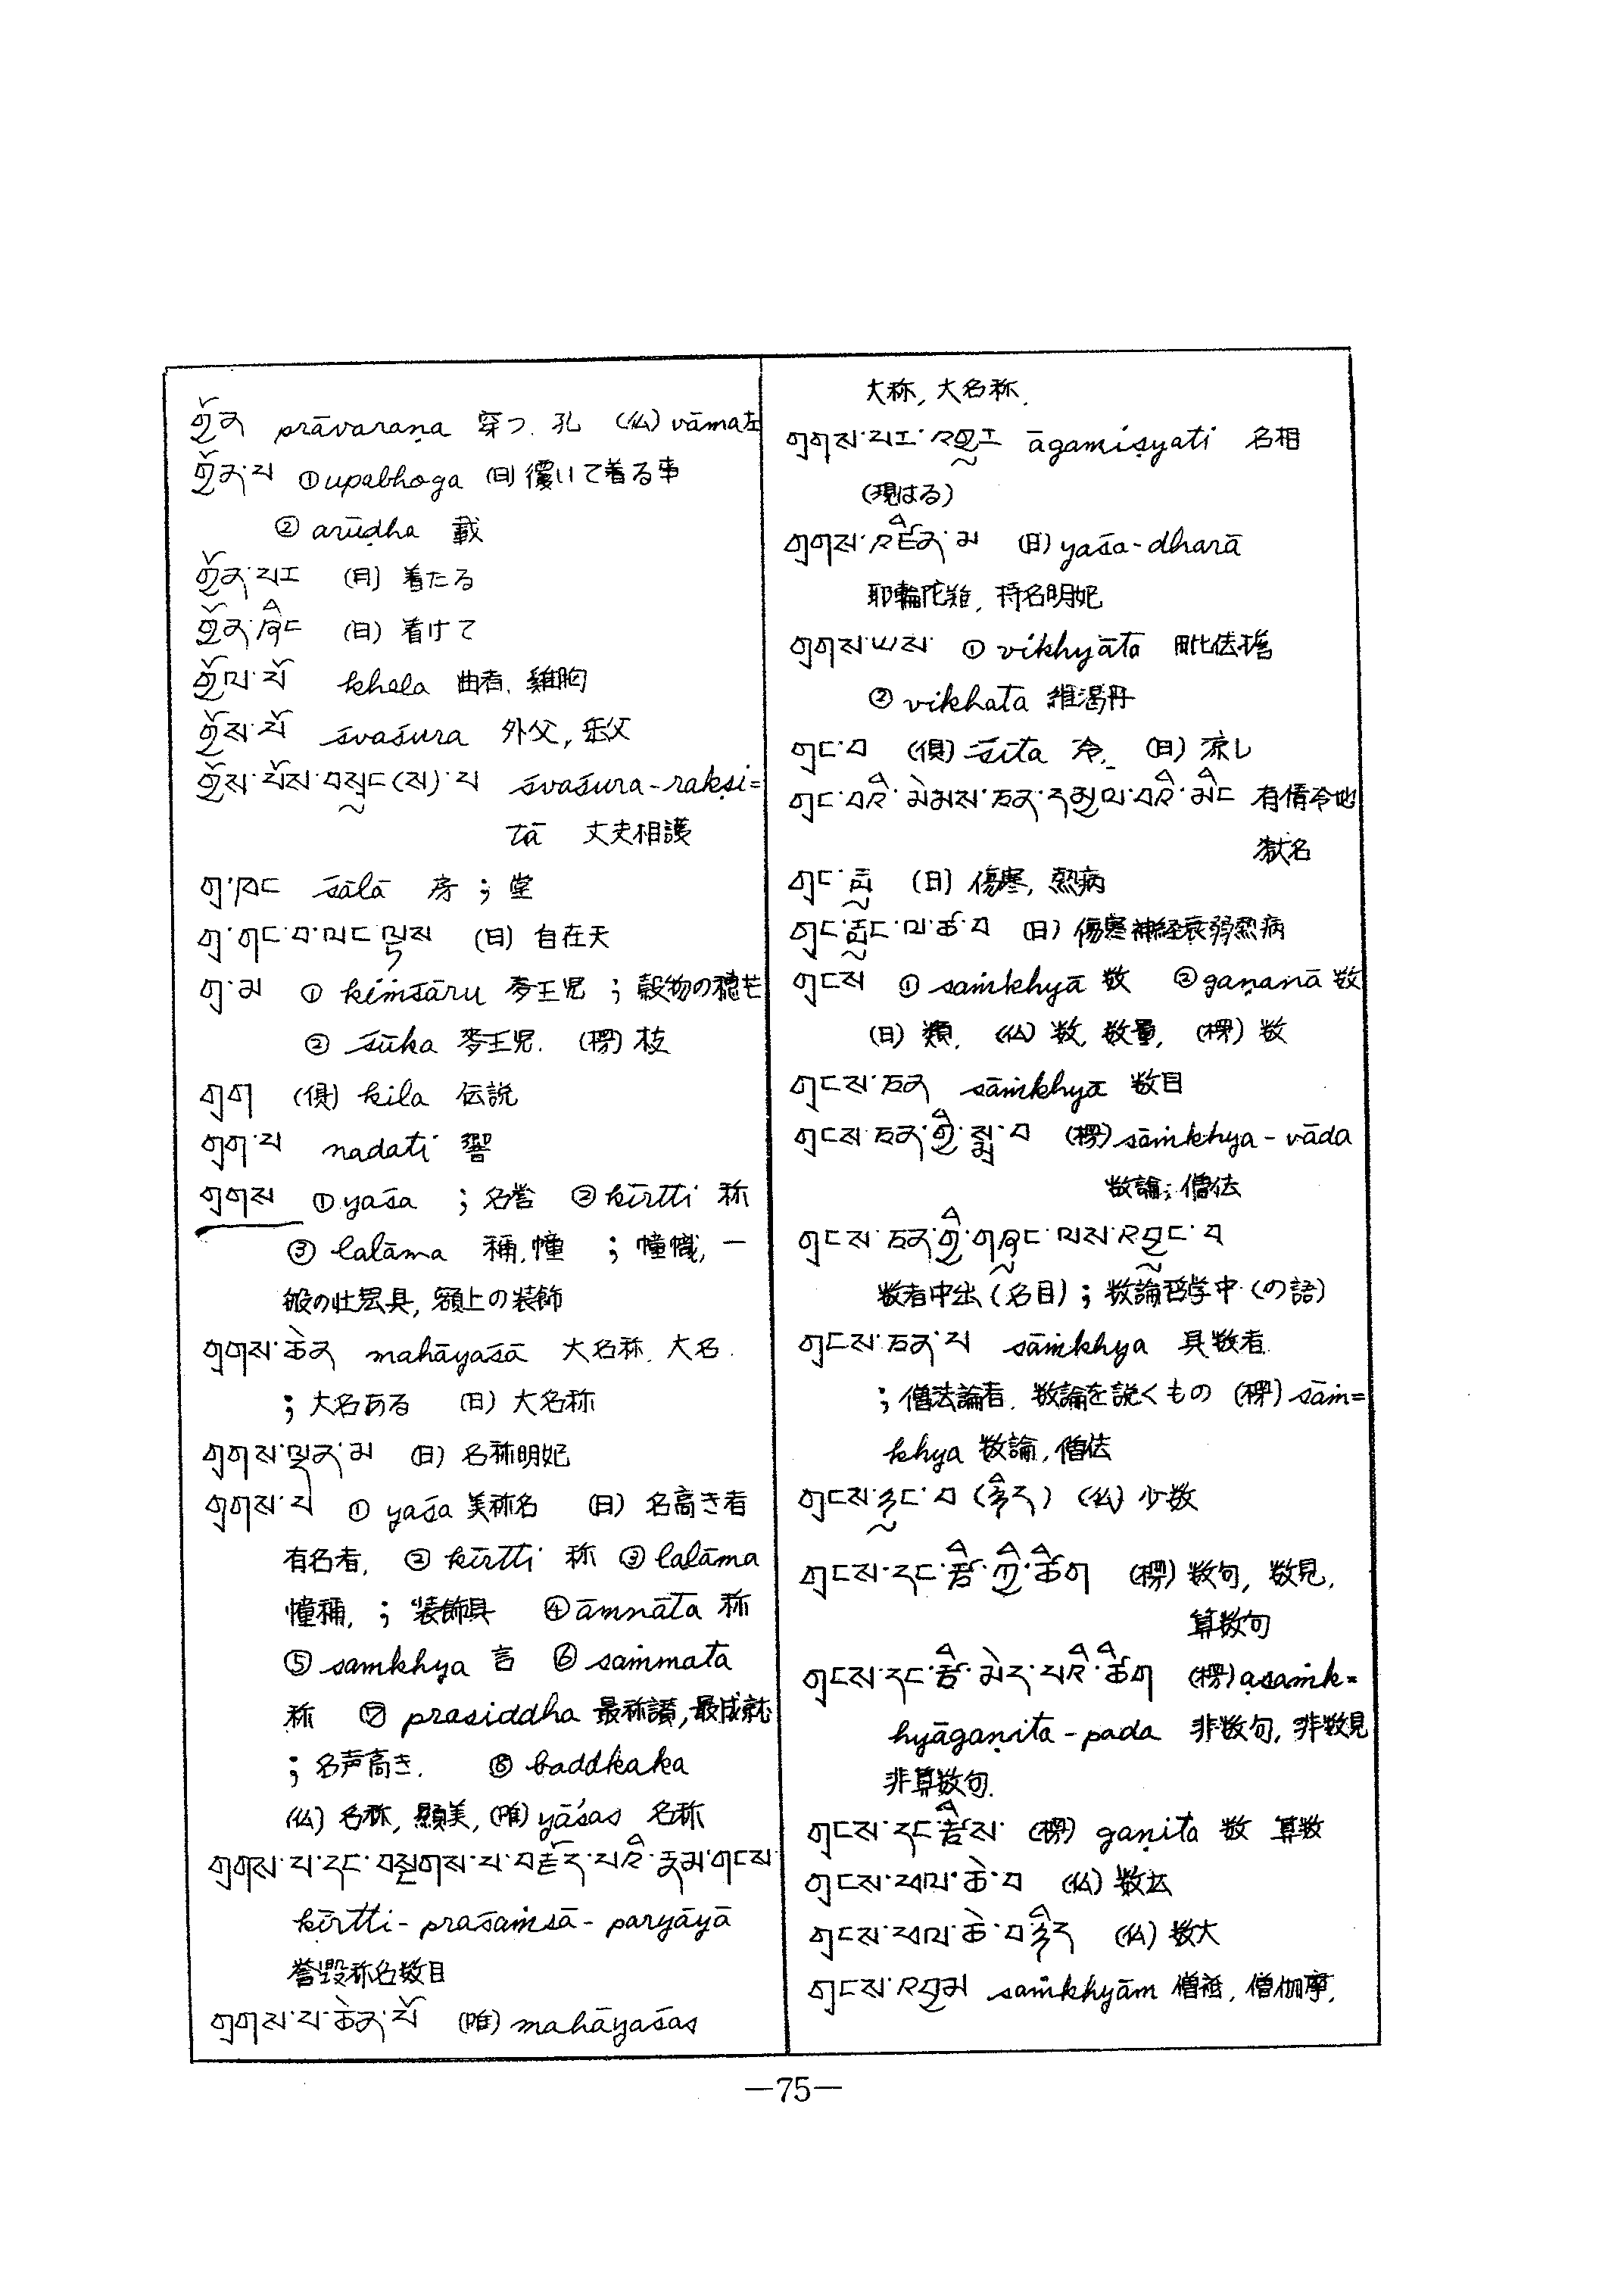 གྱོན prāvaraṇa 穿つ. 孔 (仏) vāma左
གྱོན་པ ①upabhoga (日) 覆いて着る事
② arūḍha 載
གྱོན་པར (月) 着たる
གྱོན་ཞིང (日) 着けて
གྱོལ་པོ khela 曲者. 雞胸
གྱོས་པོ śvaśura 外父, 岳父
གྱོས་པོས་བསྲུང(ས)་པ śvaśura-rakṣi=
tā 丈夫相護
གྲ་ཁང śālā 房 ; 堂
(日) 自在天
གྲ་མ ① kiṁśāru 麥王児 ; 穀物の穂芒
② śūka 麥王児. (楞) 枝
གྲག (倶) kila 伝説
གྲག་པ nadati 響
གྲགས ①yaśa ; 名誉 ②kīrtti 称
③ lalāma 稱,幢 ; 幢幟, 一
般の壮具, 額上の装飾
གྲགས་ཆེན mahāyaśā 大名称. 大名.
; 大名ある (日) 大名称
གྲགས་ལྡན་མ (日) 名称明妃
གྲགས་པ ① yaśa 美称名 (日) 名高き者
有名者, ② kīrtti 称 ③ lalāma
幢稱, ; 装飾具 ④āmnāta 称
⑤ samkhya 言 ⑥ saṁmata
称 ⑦ prasiddha 最称讃,最成就
; 名声高き. ⑧ baddkaka
(仏) 名称, 顕美, (唯) yāśas 名称
གྲགས་པ་དང་བསྔགས་པ་བརྗོད་པའི་རྣམ་གྲངས
kīrtti-praśaṁsā-paryāyā
誉毀称名数目
གྲགས་པ་ཆེན་པོ (唯) mahāyaśas
大称, 大名称,
གྲགས་པར་འགྱུར āgamiṣyati 名相
(現はる)
གྲགས་འཛིན་མ (日) yaśa-dharā
耶輪陀雞, 持名明妃
གྲགས་ཡས ① vikhyāta 毗佉擔
② vikhata 維渇丹
གྲང་བ (倶) śīta 冷. (日) 涼し
གྲང་བའི་སེམས་ཅན་དམྱལ་བའི་མིང 有情冷地
獄名
(日) 傷寒, 熱病
(日) 傷寒神経衰弱熱病
གྲངས ① saṁkhyā 数 ②gaṇanā 数
(日) 類, (仏) 数, 数量, (楞) 数
གྲངས་ཅན sāṁkhya 数目
གྲངས་ཅན་གྱི་སྨྲ་བ (楞) sāṁkhya-vāda
数論; 僧佉
གྲངས་ཅན་གྱི་གཞུང་ལས་འབྱུང་བ
数者中出 (名目) ; 数論哲学中 (の語)
གྲངས་ཅན་པ sāṁkhya 具数者
; 僧法論者. 数論を説くもの (楞) sāṁ=
khya 数論, 僧佉
གྲངས་ཉུང་བ (ཉིད) (仏) 少数
གྲངས་དང་རྩི་ཀྱི་ཚིག (楞) 数句, 数見,
算数句
གྲངས་དང་རྩི་མེད་པའི་ཚིག (楞) asaṁk=
hyāgaṇita-pada 非数句, 非数見
非算数句.
གྲངས་དང་རྩིས (楞) gaṇita 数 算数
གྲངས་ཕལ་ཆེ་བ (仏) 数大
གྲངས་ཕལ་ཆེ་བ་ཉིད (仏) 数大
གྲངས་འགྲམ saṁkhyām 僧祇, 僧伽摩,
—75—